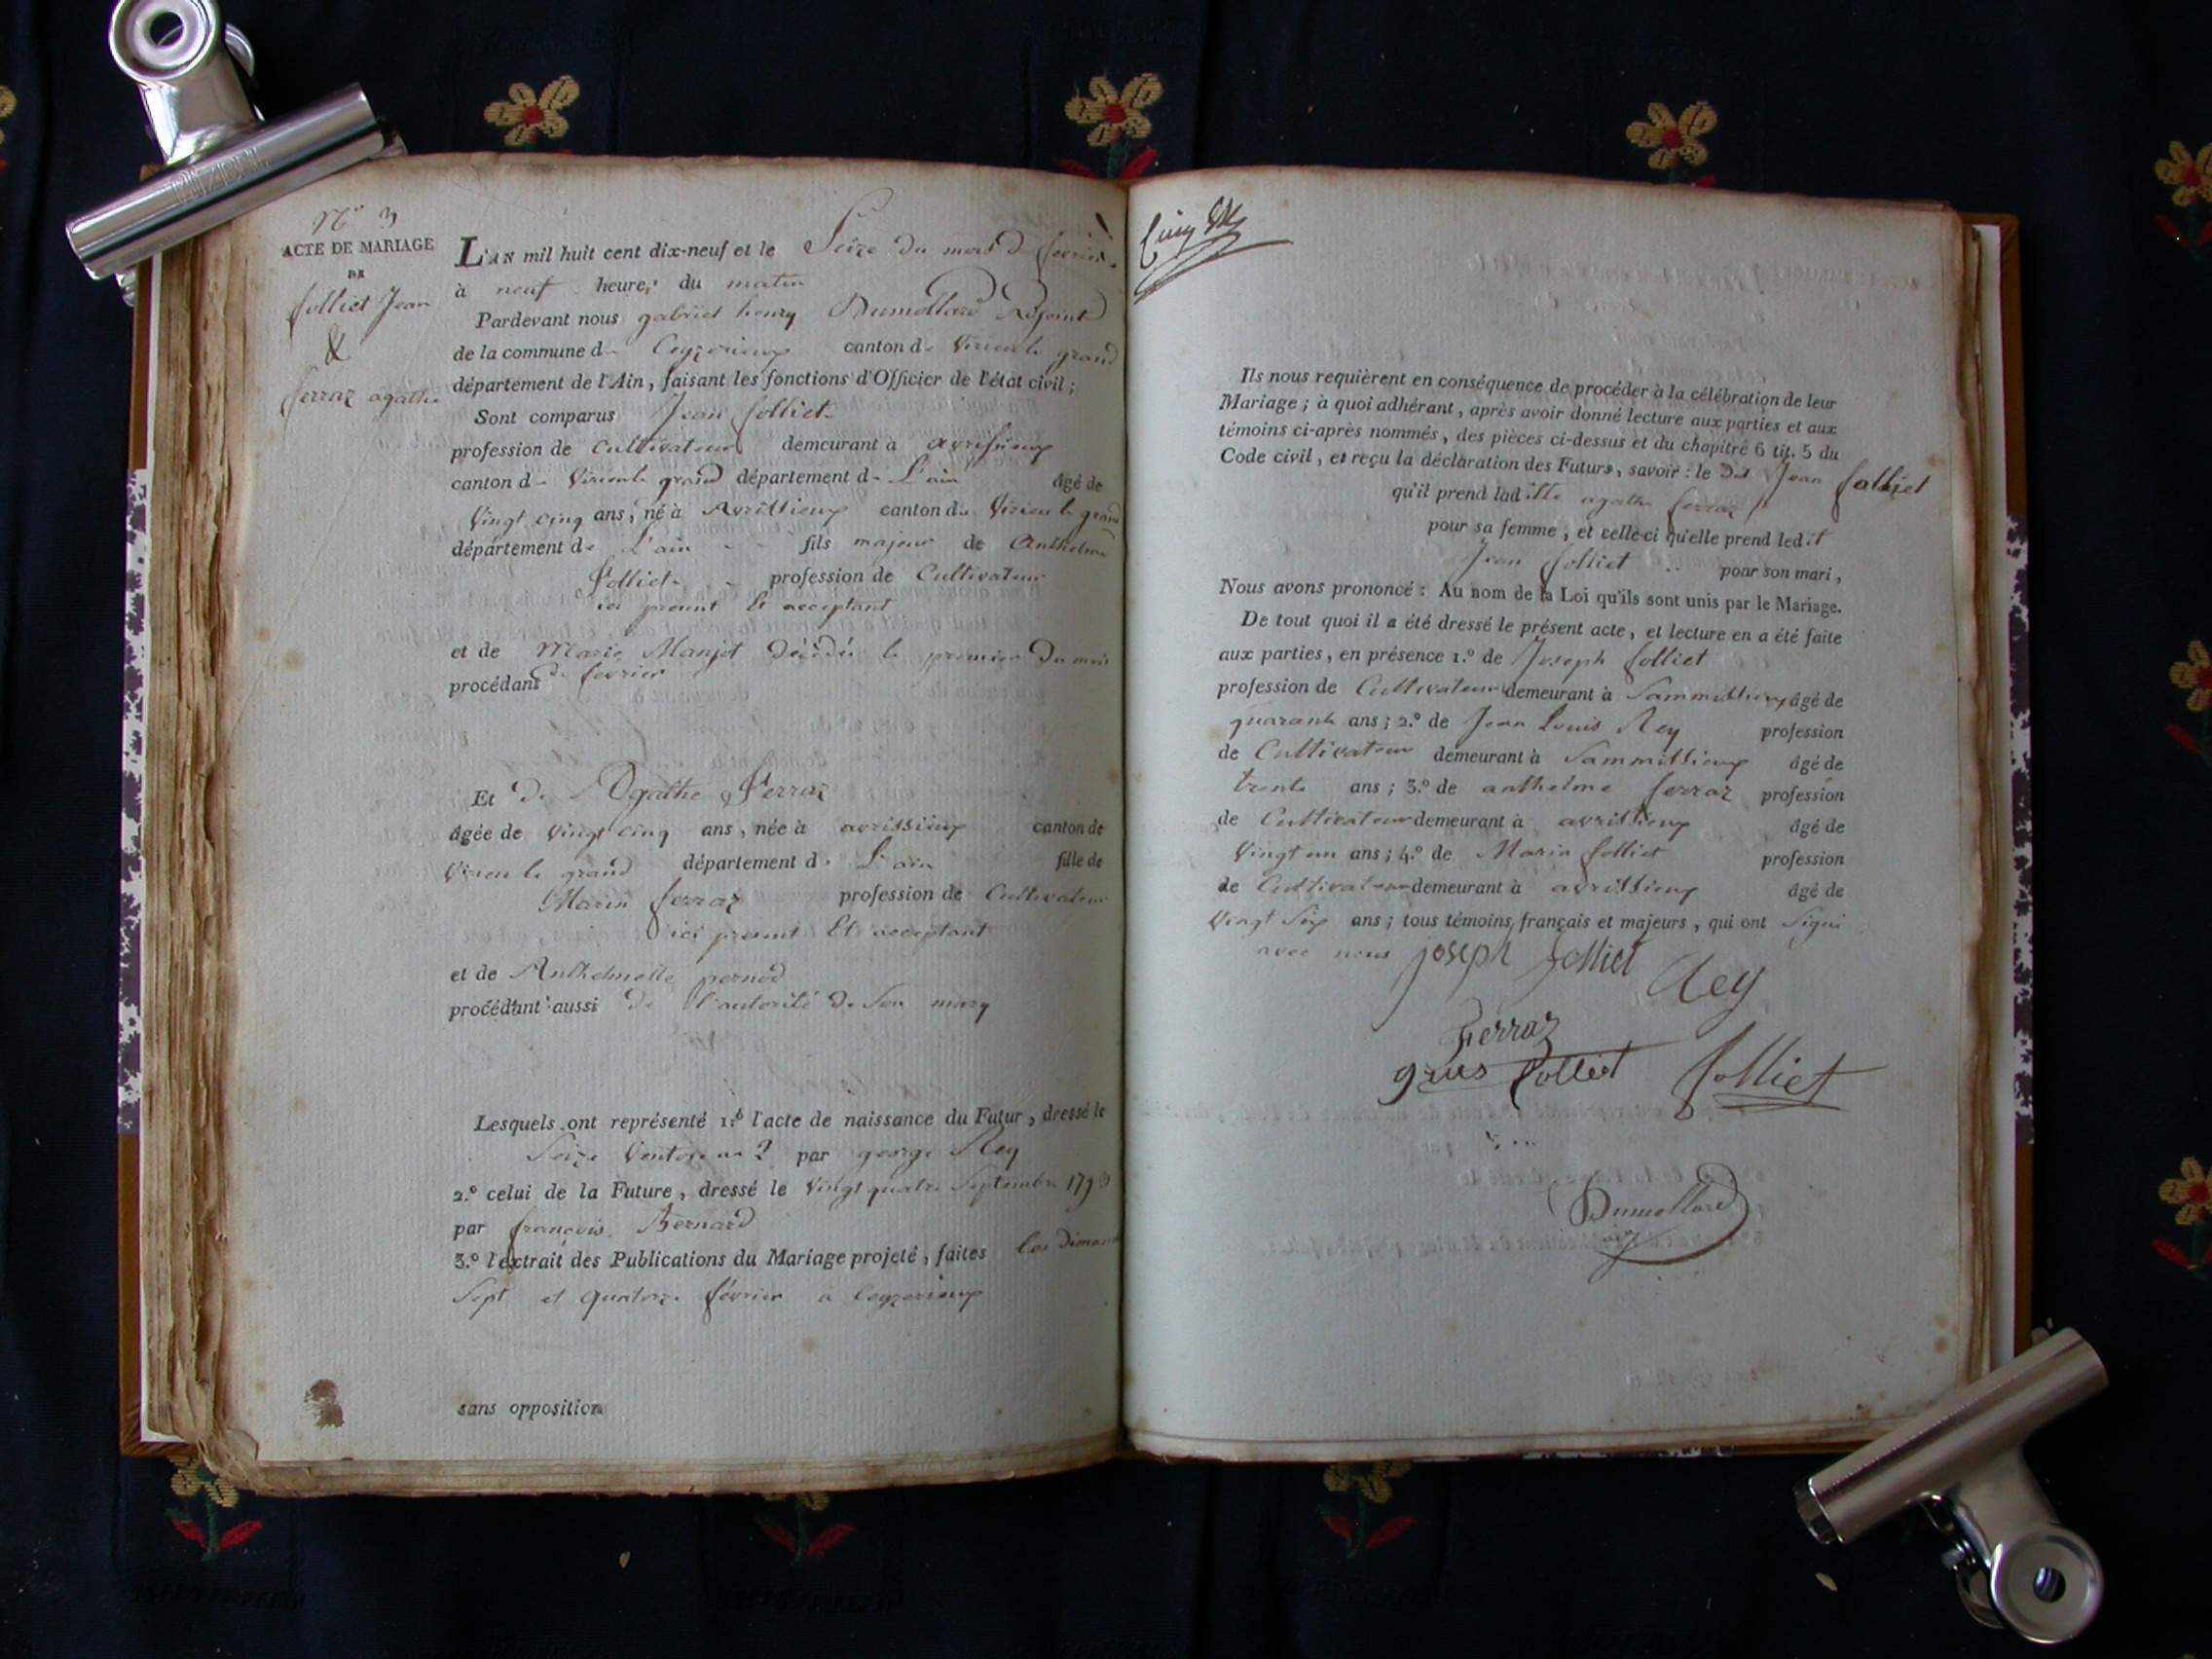 N° 3
ACTE DE MARIAGE
DE
folliet Jean
&
ferraz agathe
L'AN mil huit cent dix-neuf et le Seize du mois de fevrier
à neuf heures du matin
Pardevant nous gabriel henry Dumollard Adjoint
de la commune de Ceyzerieux canton de Virieu le grand
département de l'Ain, faisant les fonctions d'Officier de l'état civil;
Sont comparus Jean folliet
profession de Cultivateur demeurant à avrissieux
canton de Virieu le grand département de L'ain âgé de
Vingt cinq ans, né à Avrissieux canton de Virieu le grand
département de L'ain fils majeur de Anthelme
folliet profession de Cultivateur
ici present Et acceptant
et de Marie Manjot Décédée le premier Du mois
procédant de fevrier
Et De Agathe Ferraz
âgée de Vingt cinq ans, née à avrissieux canton de
Virieu le grand département de L'ain fille de
Marin ferraz profession de Cultivateur
ici present Et acceptant
et de Anthelmette pernod
procédant aussi de l'autorité De Son mary
Lesquels ont représenté 1.° l'acte de naissance du Futur, dressé le
Seize Ventose an 2 par george Rey
2.° celui de la Future, dressé le Vingt quatre Septembre 1793
par françois Bernard
3.° l'extrait des Publications du Mariage projeté, faites les dimanc
Sept et quatorze février à Ceyzerieux
sans opposition
Ils nous requièrent en conséquence de procéder à la célébration de leur
Mariage; à quoi adhérant, après avoir donné lecture aux parties et aux
témoins ci-après nommés, des pièces ci-dessus et du chapitre 6 tit. 5 du
Code civil, et reçu la déclaration des Futurs, savoir: le Dit Jean folliet
qu'il prend ladite agathe ferraz
pour sa femme, et celle-ci qu'elle prend ledit
Jean folliet pour son mari,
Nous avons prononcé: Au nom de la Loi qu'ils sont unis par le Mariage.
De tout quoi il a été dressé le présent acte, et lecture en a été faite
aux parties, en présence 1.° de Joseph folliet
profession de Cultivateur demeurant à Sammissieux âgé de
quarante ans; 2.° de Jean Louis Rey profession
de Cultivateur demeurant à Sammissieux âgé de
trente ans; 3.° de anthelme ferraz profession
de Cultivateur demeurant à avrissieux âgé de
Vingt un ans; 4.° de Marin folliet profession
de Cultivateur demeurant à avrissieux âgé de
Vingt Six ans; tous témoins français et majeurs, qui ont Signé
avec nous joseph folliet
Rey
Ferraz
folliet folliet
Dumollard